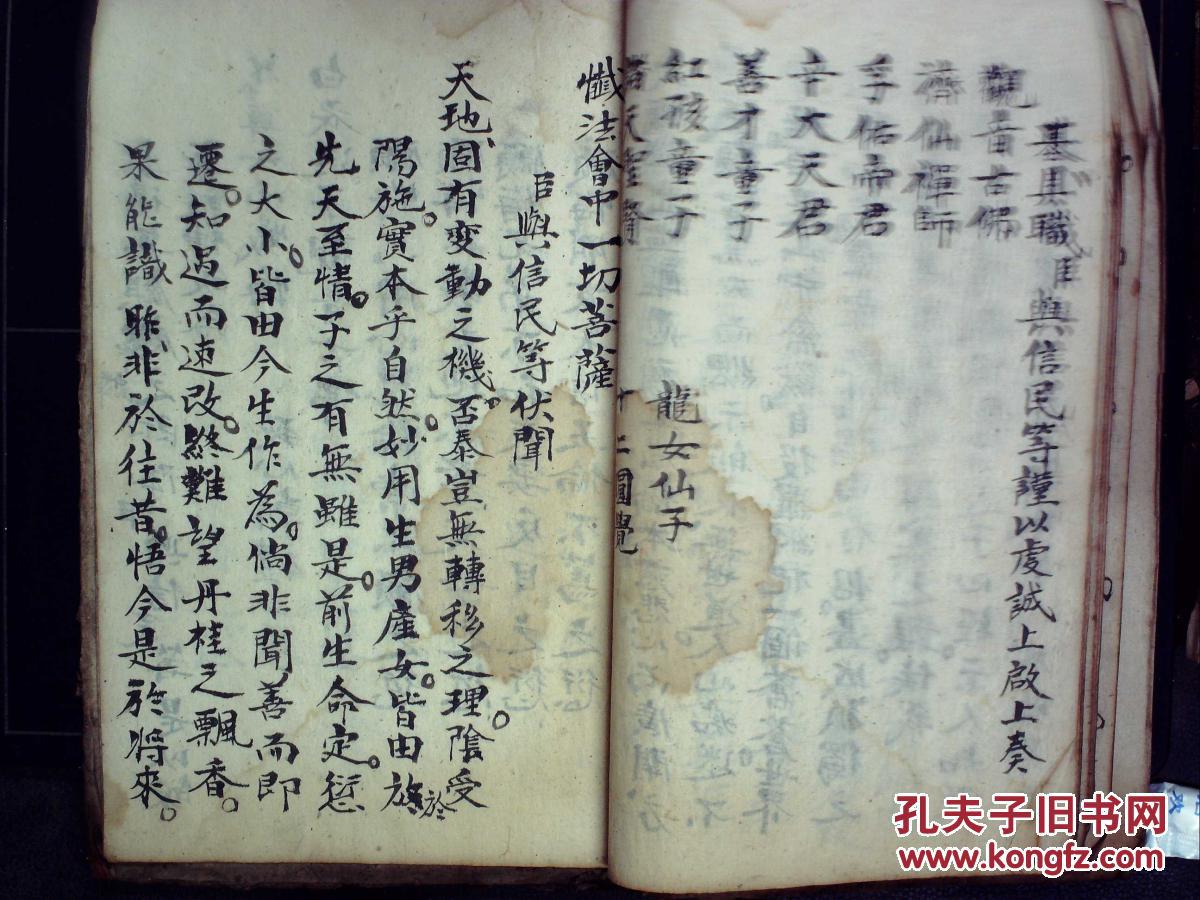 基具職臣與信民等謹以虔誠上啟上奏
觀音古佛
濟仙禪師
孚佑帝君
辛大天君
善才童子
紅孩童子
龍女仙子
十二圓覺
懺法會中一切菩薩
臣與信民等伏聞
天地固有變動之機。否泰豈無轉移之理。陰受
陽施。實本乎自然妙用生男產女。皆由於
先天至情。子之有無雖是。前生命定。愆
之大小。皆由今生作為。倘非聞善而即
遷。知過而速改。終難望丹桂之飄香。
果能識昨非於往昔。悟今是於將來。
孔夫子旧书网
www.kongfz.com